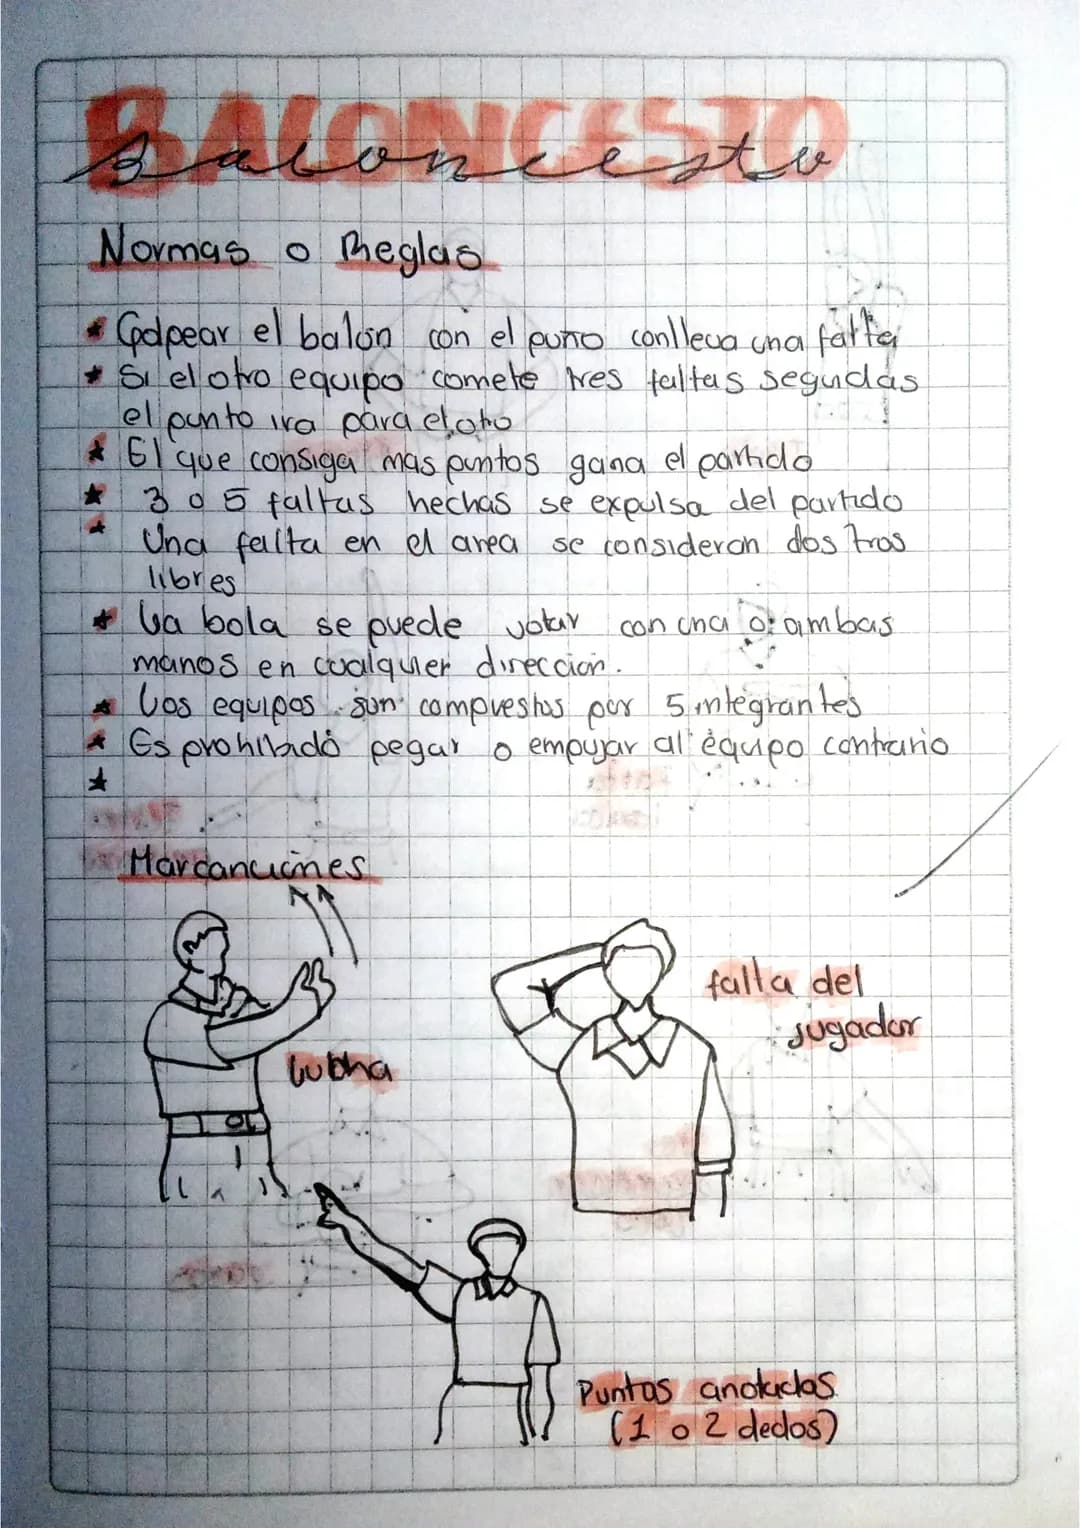 BALONCESTO
Baloncesto
Normas o Reglas
★ Golpear el balón con el puño conlleva una falta
★ Si el otro equipo comete tres faltas seguidas
el punto ira para el otro
★ El que consiga mas puntos gana el partido
★ 3 o 5 faltas hechas se expulsa del partido
★ Una falta en el area se consideran dos tros
libres
★ La bola se puede votar con una o ambas
manos en cualquier direccion.
★ Los equipos son compuestos por 5 integrantes
★ Es prohibido pegar o empujar al equipo contrario
★
falta del
jugador
Lucha
Puntos anotados
(1 o 2 dedos)